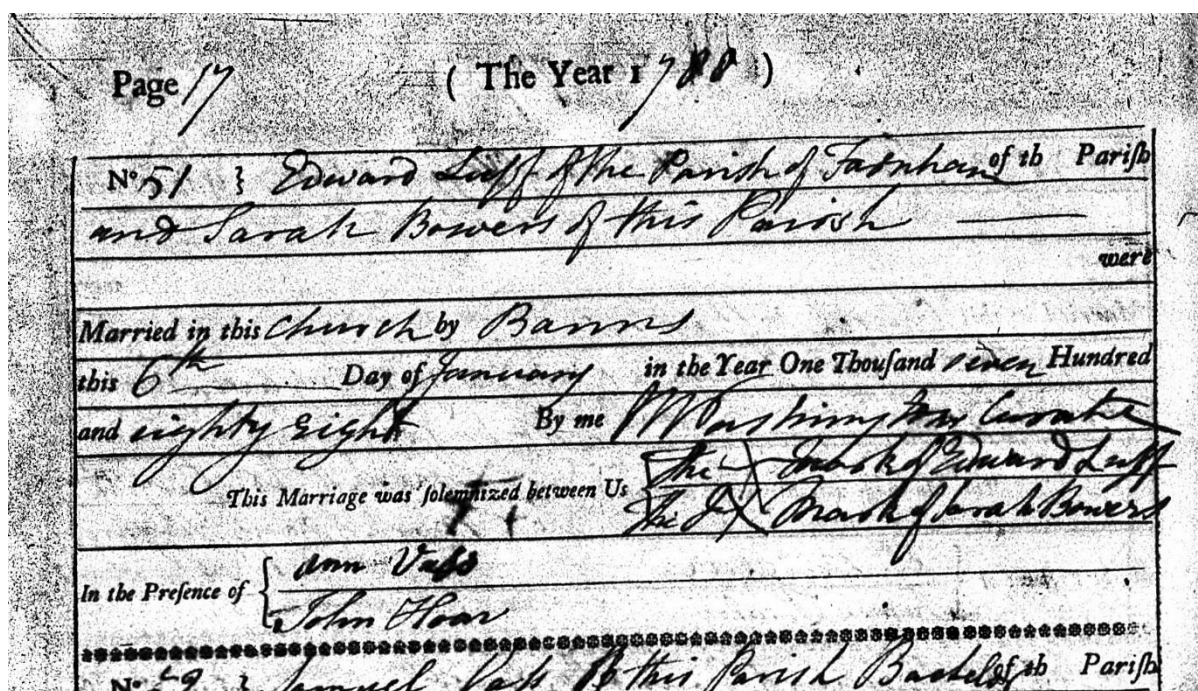 Page 17 ( The Year 1788 )
No 51 } Edward Luff of the Parish of Farnham of th Pariſh
and Sarah Bowers of this Parish
were
Married in this Church by Banns
this 6th Day of January in the Year One Thouſand seven Hundred
and eighty eight By me Curate
This Marriage was ſolemnized between Us The X Mark of Edward Luff
The X Mark of Sarah Bowers
In the Preſence of { Ann Vass
John Hoar
No 52 } Samuel Vass of this Parish Bachelor of th Pariſh